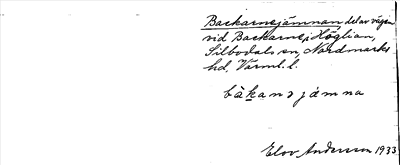 Backarnejämnan, del av vägen
vid Backarne, Höglian,
Silbodals sn, Nordmarks
hd, Värml. l.
bàkanajämna
Elov Andersson 1933